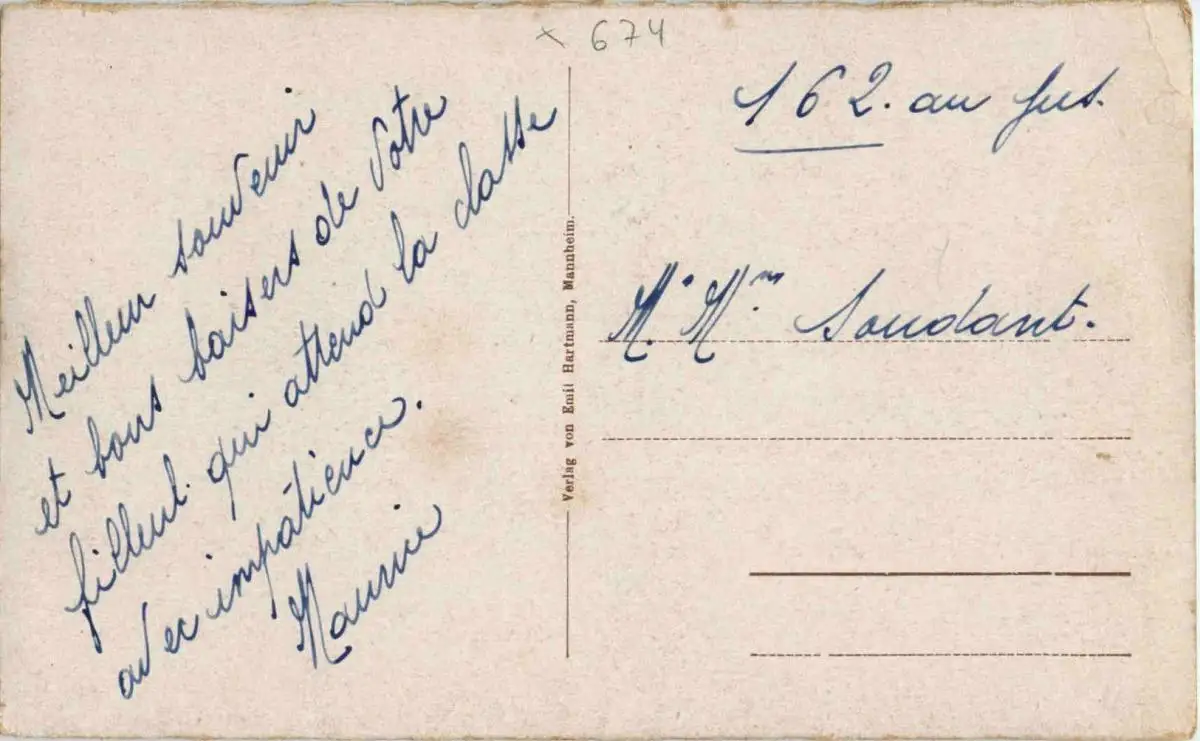 x 674
162. au jus.
Meilleur souvenir
et bons baisers de Votre
filleul. qui attend la classe
avec impatience.
Maurice
Verlag von Emil Hartmann, Mannheim.
M. Mme Soudant.